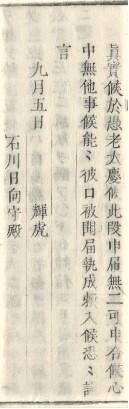 眞實候於愚老大慶候此段申届無二可申合候心
中無他事候能〻彼口被聞届執成頼入候恐〻謹
言
九月五日　輝虎
石川日向守殿